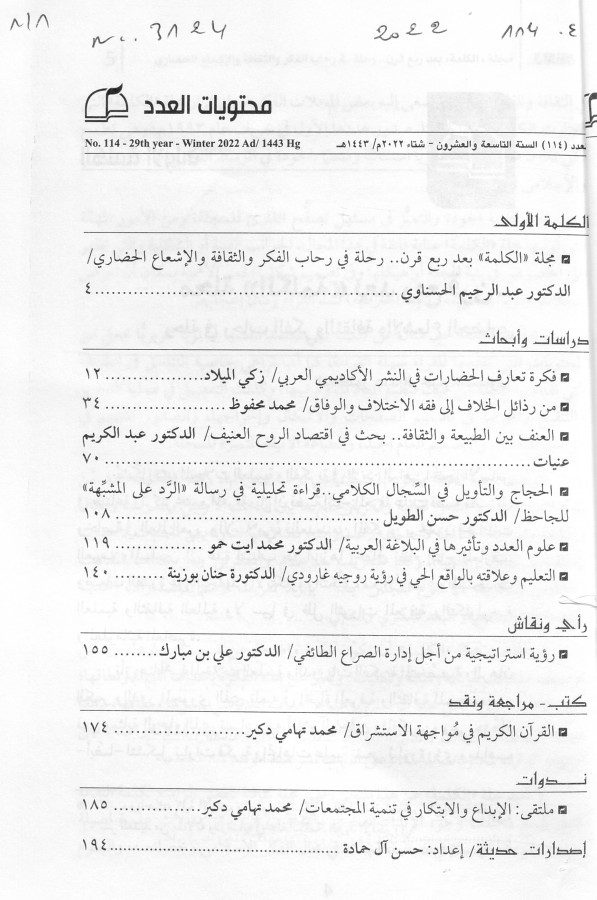 ٨١٨
Nu. 3824
2022
١١٤ ع.
محتويات العدد
No. 114 - 29th year - Winter 2022 Ad/ 1443 Hg
عدد (١١٤) السنة التاسعة والعشرون - شتاء ٢٠٢٢م/ ١٤٤٣هـ
الكلمة الأولى
مجلة «الكلمة» بعد ربع قرن.. رحلة في رحاب الفكر والثقافة والإشعاع الحضاري/
الدكتور عبد الرحيم الحسناوي .................... ٤
دراسات وأبحاث
فكرة تعارف الحضارات في النشر الأكاديمي العربي/ زكي الميلاد.................... ١٢
من رذائل الخلاف إلى فقه الاختلاف والوفاق/ محمد محفوظ .................... ٣٤
العنف بين الطبيعة والثقافة.. بحث في اقتصاد الروح العنيف/ الدكتور عبد الكريم
عنيات.................... ٧٠
الحجاج والتأويل في السِّجال الكلامي..قراءة تحليلية في رسالة «الرَّد على المشبِّهة»
للجاحظ/ الدكتور حسن الطويل .................... ١٠٨
علوم العدد وتأثيرها في البلاغة العربية/ الدكتور محمد ايت حمو .................... ١١٩
التعليم وعلاقته بالواقع الحي في رؤية روجيه غارودي/ الدكتورة حنان بوزينة ........... ١٤٠
رأي ونقاش
رؤية استراتيجية من أجل إدارة الصراع الطائفي/ الدكتور علي بن مبارك.......... ١٥٥
كتب- مراجعة ونقد
القرآن الكريم في مُواجهة الاستشراق/ محمد تهامي دكير.................... ١٧٤
نـدوات
ملتقى: الإبداع والابتكار في تنمية المجتمعات/ محمد تهامي دكير.................... ١٨٥
إصدارات حديثة/ إعداد: حسن آل حمادة .................... ١٩٤